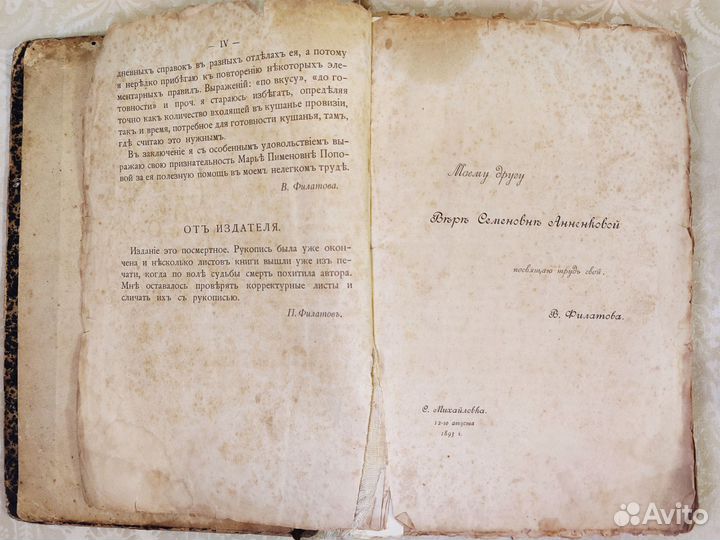 — IV —
дневныхъ справокъ въ разныхъ отдѣлахъ ея, а потому
я нерѣдко прибѣгаю къ повторенію нѣкоторыхъ эле-
ментарныхъ правилъ. Выраженій: «по вкусу», «до го-
товности» и проч. я стараюсь избѣгать, опредѣляя
точно какъ количество входящей въ кушанье провизіи,
такъ и время, потребное для готовности кушанья, тамъ,
гдѣ считаю это нужнымъ.
Въ заключеніе я съ особеннымъ удовольствіемъ вы-
ражаю свою признательность Марьѣ Пименовнѣ Попо-
вой за ея полезную помощь въ моемъ нелегкомъ трудѣ.
В. Филатова.
ОТЪ ИЗДАТЕЛЯ.
Изданіе это посмертное. Рукопись была уже окон-
чена и нѣсколько листовъ книги вышли уже изъ пе-
чати, когда по волѣ судьбы смерть похитила автора.
Мнѣ оставалось провѣрять корректурные листы и
сличать ихъ съ рукописью.
П. Филатовъ.
Моему другу
Вѣрѣ Семеновнѣ Анненковой
посвящаю трудъ свой.
В. Филатова.
С. Михайловка.
12-го августа
1893 г.
Avito